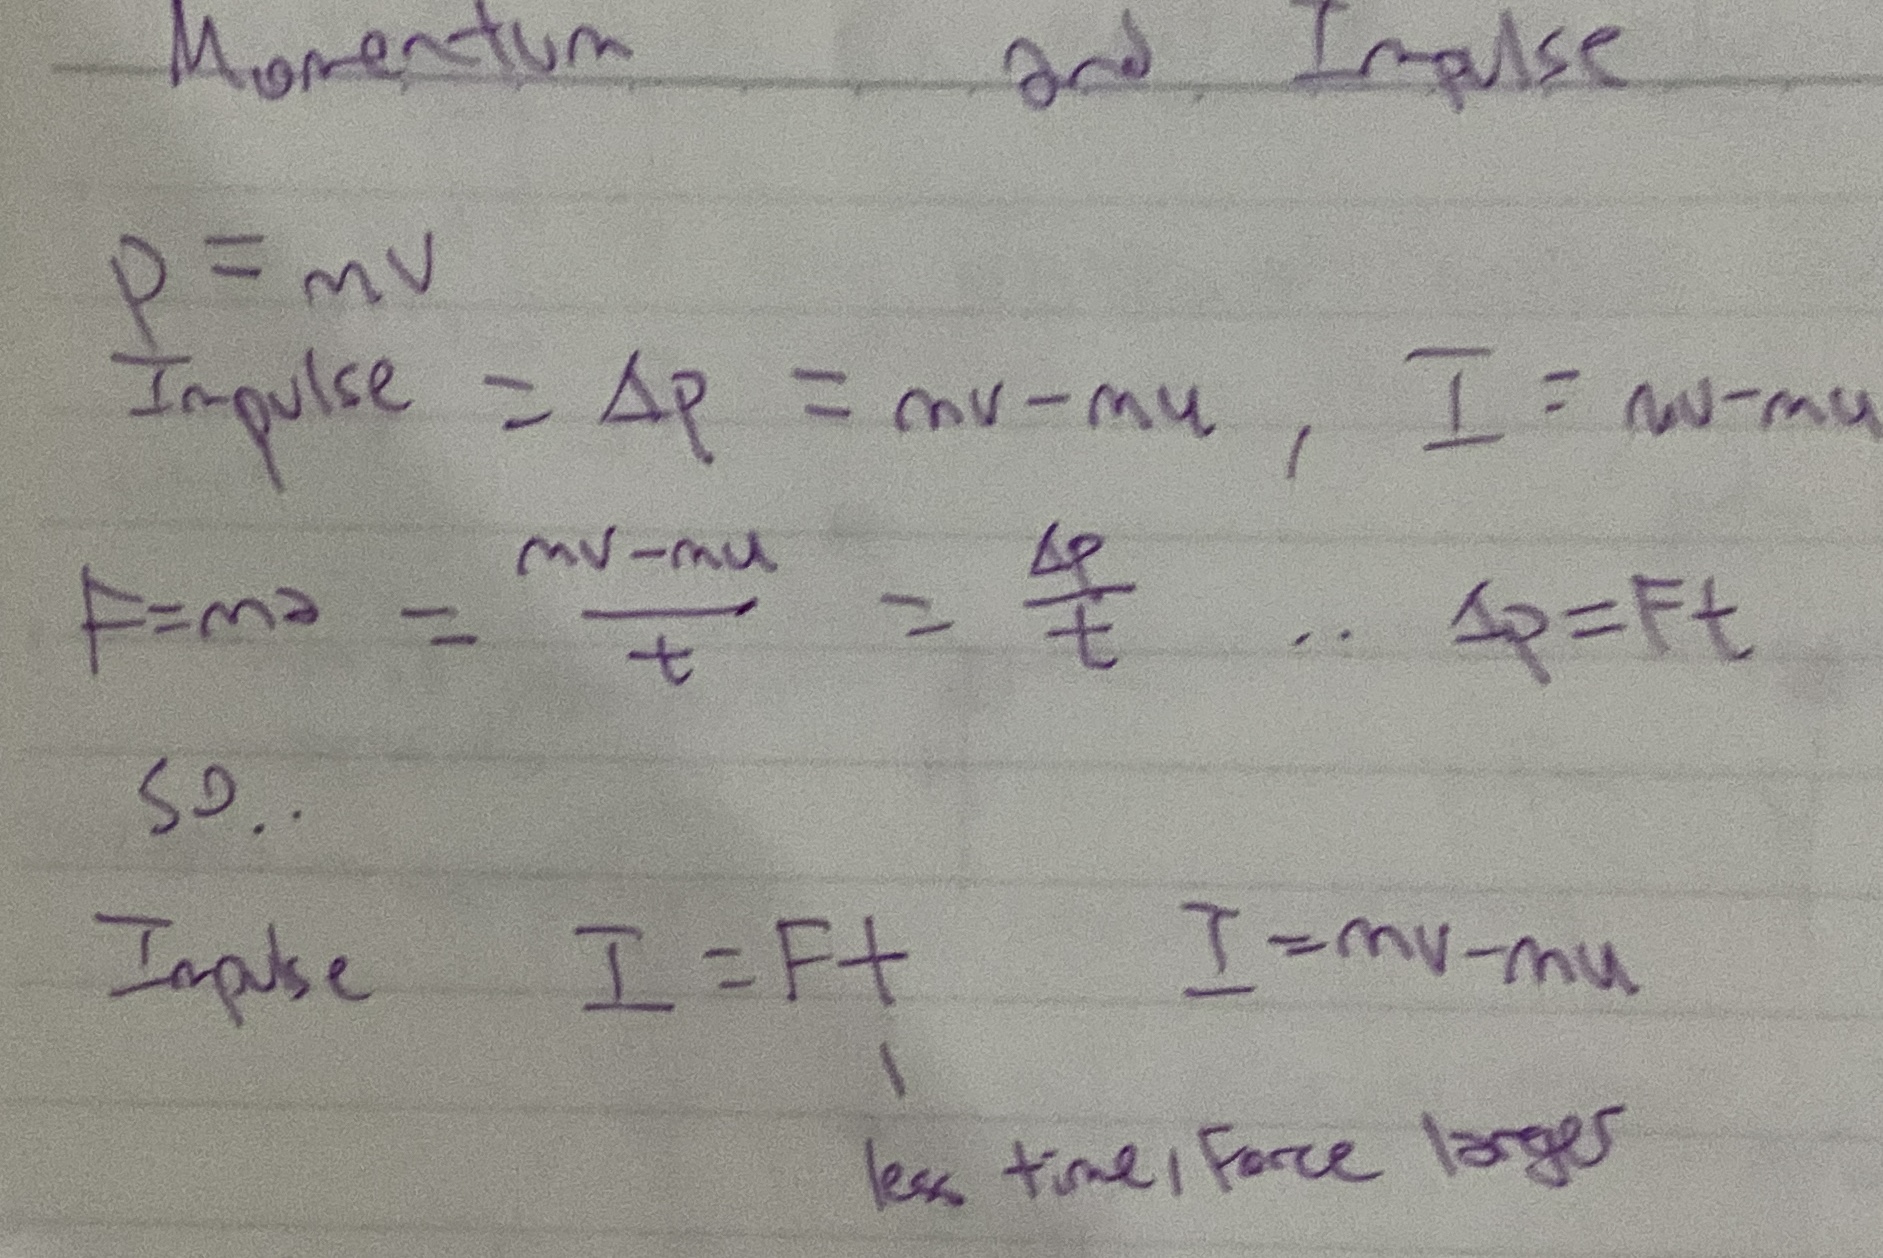 Momentum and Impulse
p = mv
Impulse = Δp = mv - mu , I = mv - mu
F = ma = \frac{mv - mu}{t} = \frac{Δp}{t} .. Δp = Ft
so..
Impulse I = Ft I = mv - mu
less time, Force larger